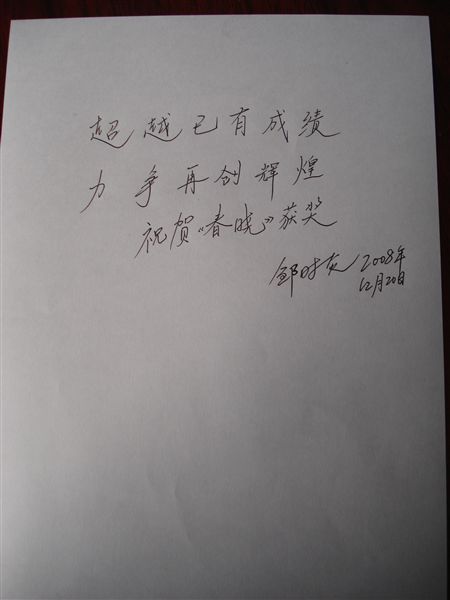 超越已有成绩
力争再创辉煌
祝贺《春晓》获奖
邹时炎 2008年
12月20日